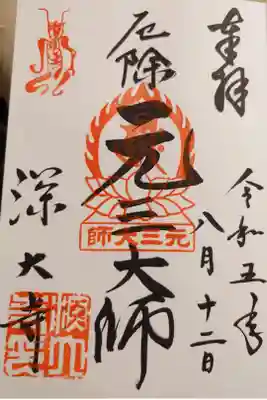 奉拝
令和五年
八月十二日
厄除
元三大師
元三大師
深大寺